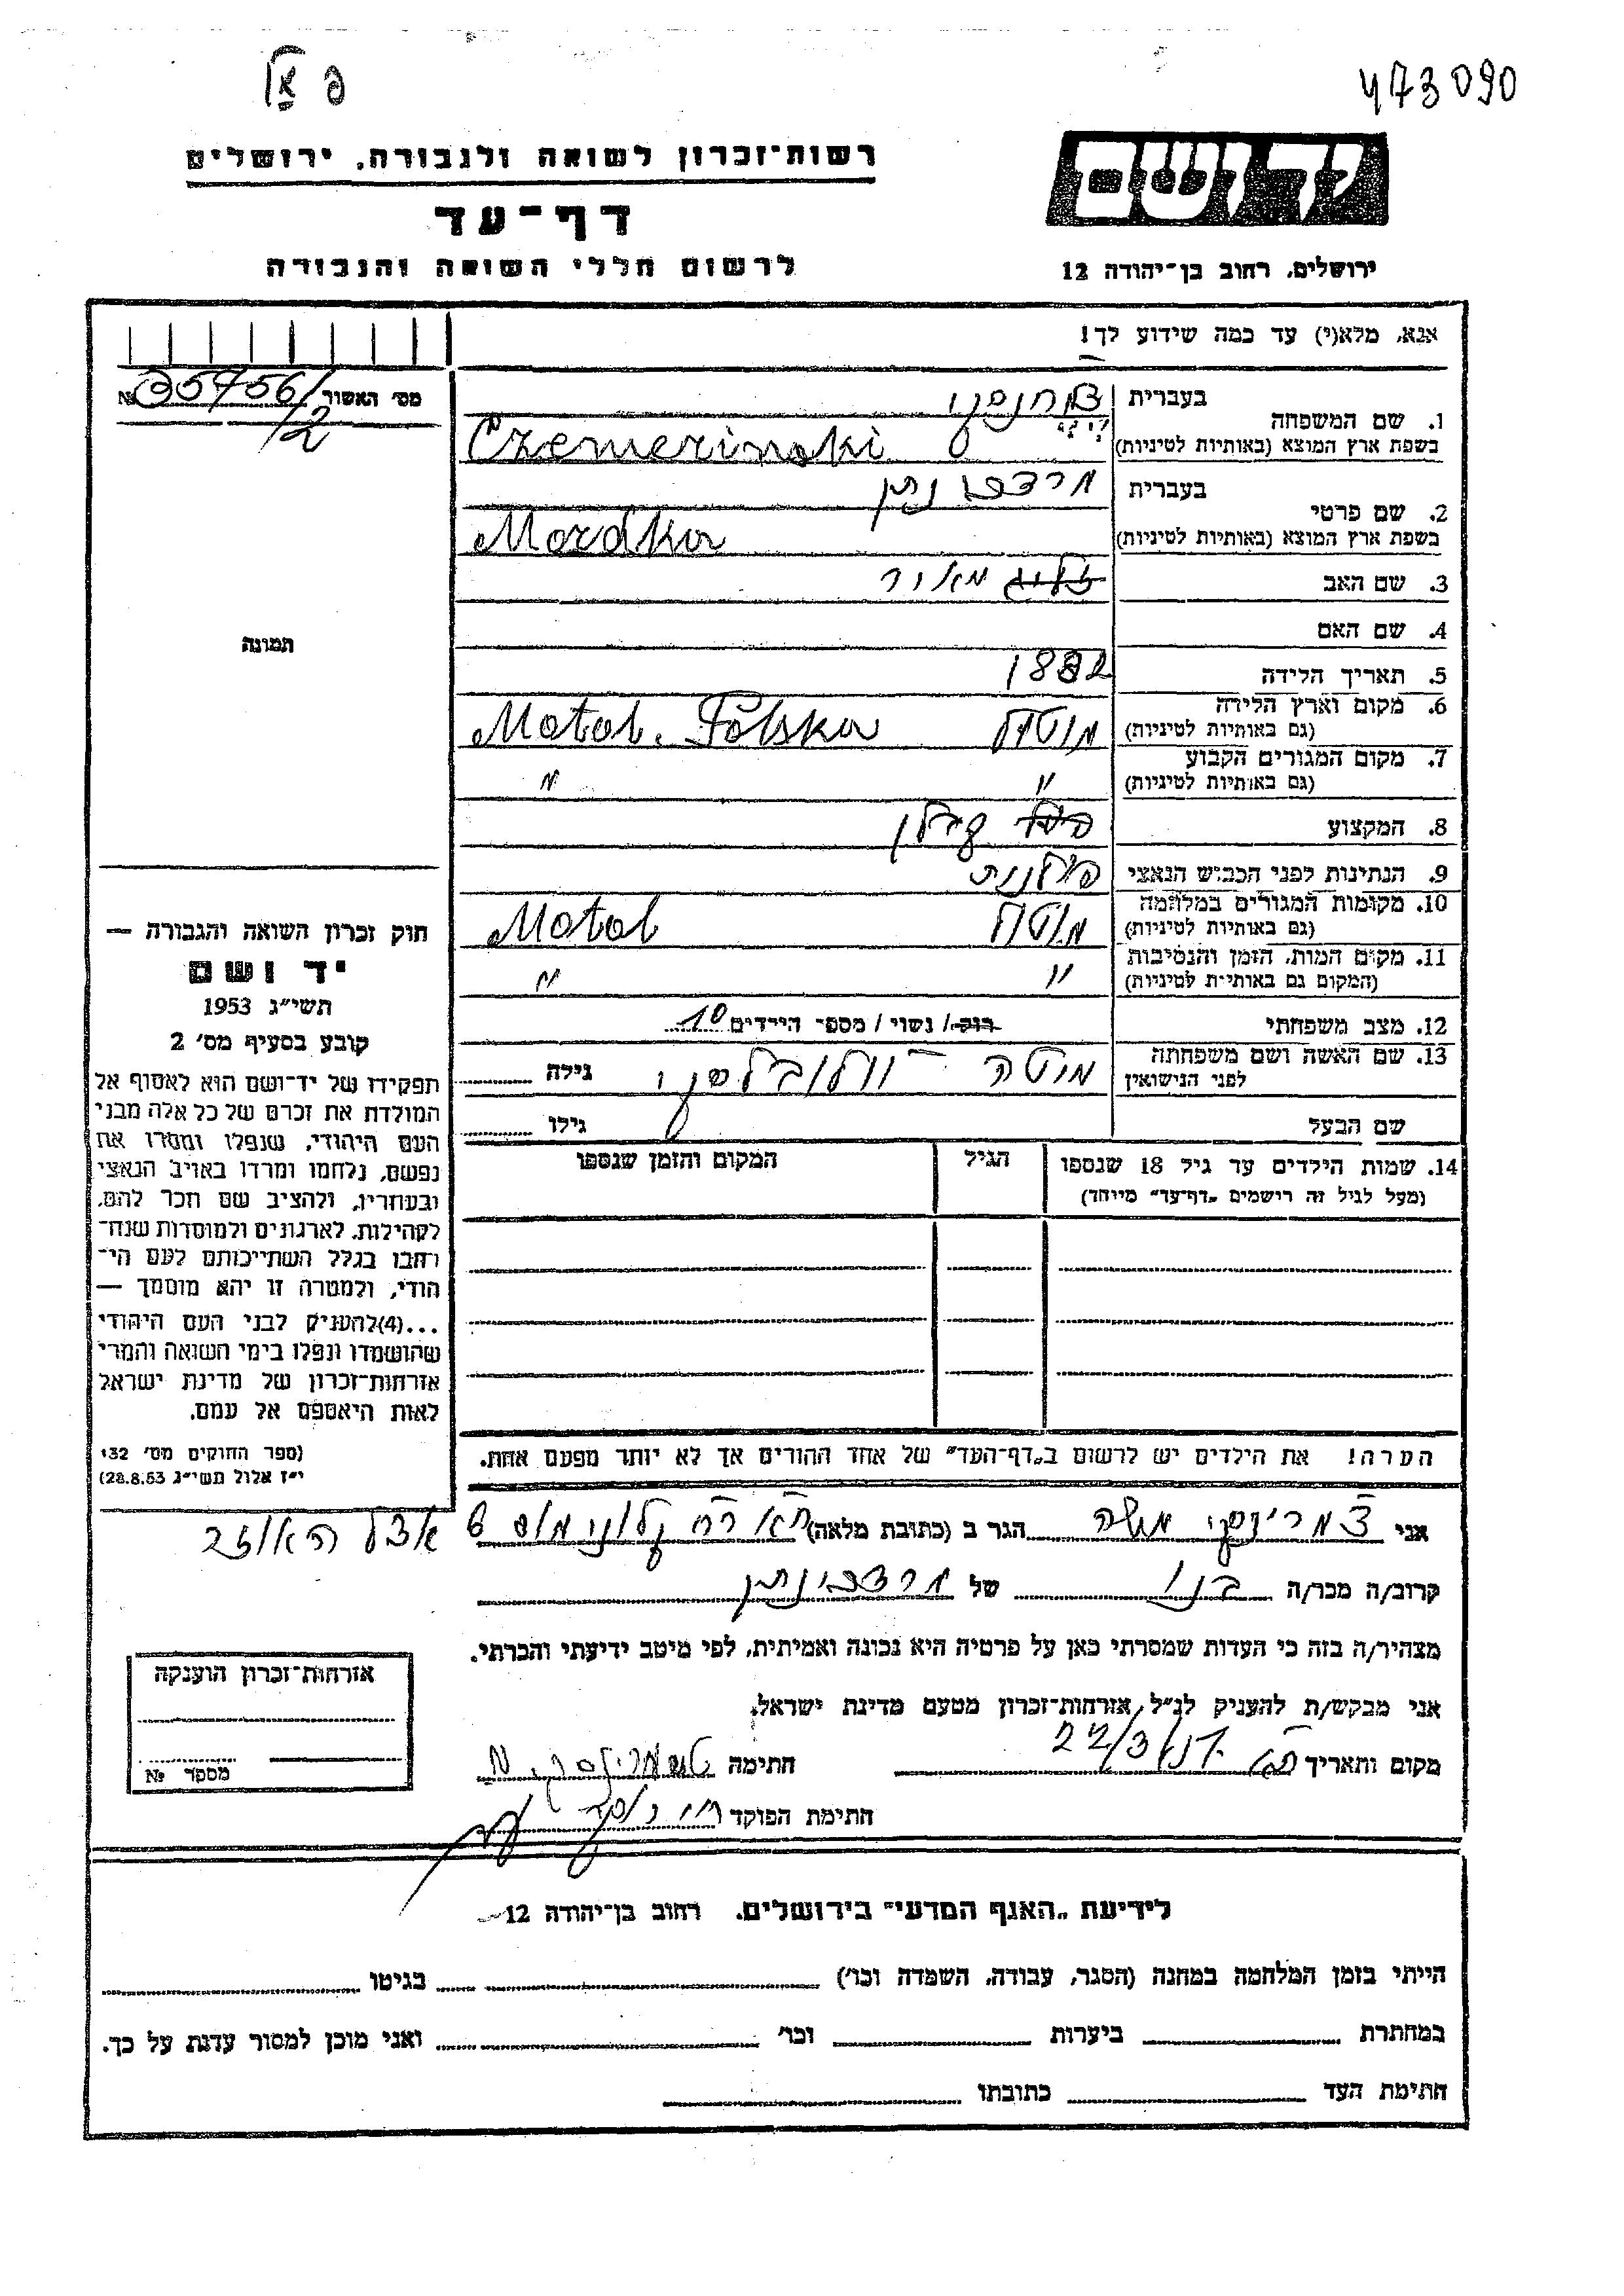 473090
רשות־זכרון לשואה ולגבורה, ירושלים
דף־עד
לרשום חללי השואה והגבורה
יד ושם
ירושלים, רחוב בן־יהודה 12
אנא, מלא(י) עד כמה שידוע לך!
מס׳ האשור № 35756/2
1. שם המשפחה
בעברית
בשפת ארץ המוצא (באותיות לטיניות) Czemerinski
2. שם פרטי
בעברית מרדכי נתן
בשפת ארץ המוצא (באותיות לטיניות) Mordka
3. שם האב מאיר
4. שם האם
5. תאריך הלידה 1882
6. מקום וארץ הלידה
(גם באותיות לטיניות) מוטלה Motol. Polska
7. מקום המגורים הקבוע
(גם באותיות לטיניות) " "
8. המקצוע קבלן
9. הנתינות לפני הכבוש הנאצי פולנית
10. מקומות המגורים במלחמה
(גם באותיות לטיניות) מוטלה Motol
11. מקום המות, הזמן והנסיבות
(המקום גם באותיות לטיניות) " "
12. מצב משפחתי רוק / נשוי / מספר הילדים 10
13. שם האשה ושם משפחתה
לפני הנישואין גילה
שם הבעל גילו
14. שמות הילדים עד גיל 18 שנספו הגיל המקום והזמן שנספו
(מעל לגיל זה רישמים „דף־עד״ מייחד)
הערה! את הילדים יש לרשום ב„דף־העד״ של אחד ההורים אך לא יותר מפעם אחת.
תמונה
חוק זכרון השואה והגבורה —
יד ושם
תשי״ג 1953
קובע בסעיף מס׳ 2
תפקידו של יד־ושם הוא לאסוף אל
המולדת את זכרם של כל אלה מבני
העם היהודי, שנפלו ומסרו את
נפשם, נלחמו ומרדו באויב הנאצי
ובעוזריו, ולהציב שם וזכר להם,
לקהילות, לארגונים ולמוסדות שנח־
רבו בגלל השתייכותם לעם הי־
הודי, ולמטרה זו יהא מוסמך —
...(4) להעניק לבני העם היהודי
שהושמדו ונפלו בימי השואה והמרי
אזרחות־זכרון של מדינת ישראל
לאות היאספם אל עמם.
(ספר החוקים מס׳ 132
י״ז אלול תשי״ג 28.8.53)
אני צמרינסקי משה הגר ב (כתובת מלאה)
קרוב/ה מכר/ה בנו של מרדכי נתן
מצהיר/ה בזה כי העדות שמסרתי כאן על פרטיה היא נכונה ואמיתית, לפי מיטב ידיעתי והכרתי.
אני מבקש/ת להעניק לנ״ל אזרחות־זכרון מטעם מדינת ישראל.
מקום ותאריך 22/3 חתימה
חתימת הפוקד
אזרחות־זכרון הוענקה
מספר №
לידיעת „האגף המדעי״ בירושלים. רחוב בן־יהודה 12
הייתי בזמן המלחמה במחנה (הסגר, עבודה, השמדה וכו׳) בגיטו
במחתרת ביערות וכו׳ ואני מוכן למסור עדות על כך.
חתימת העד כתובתו